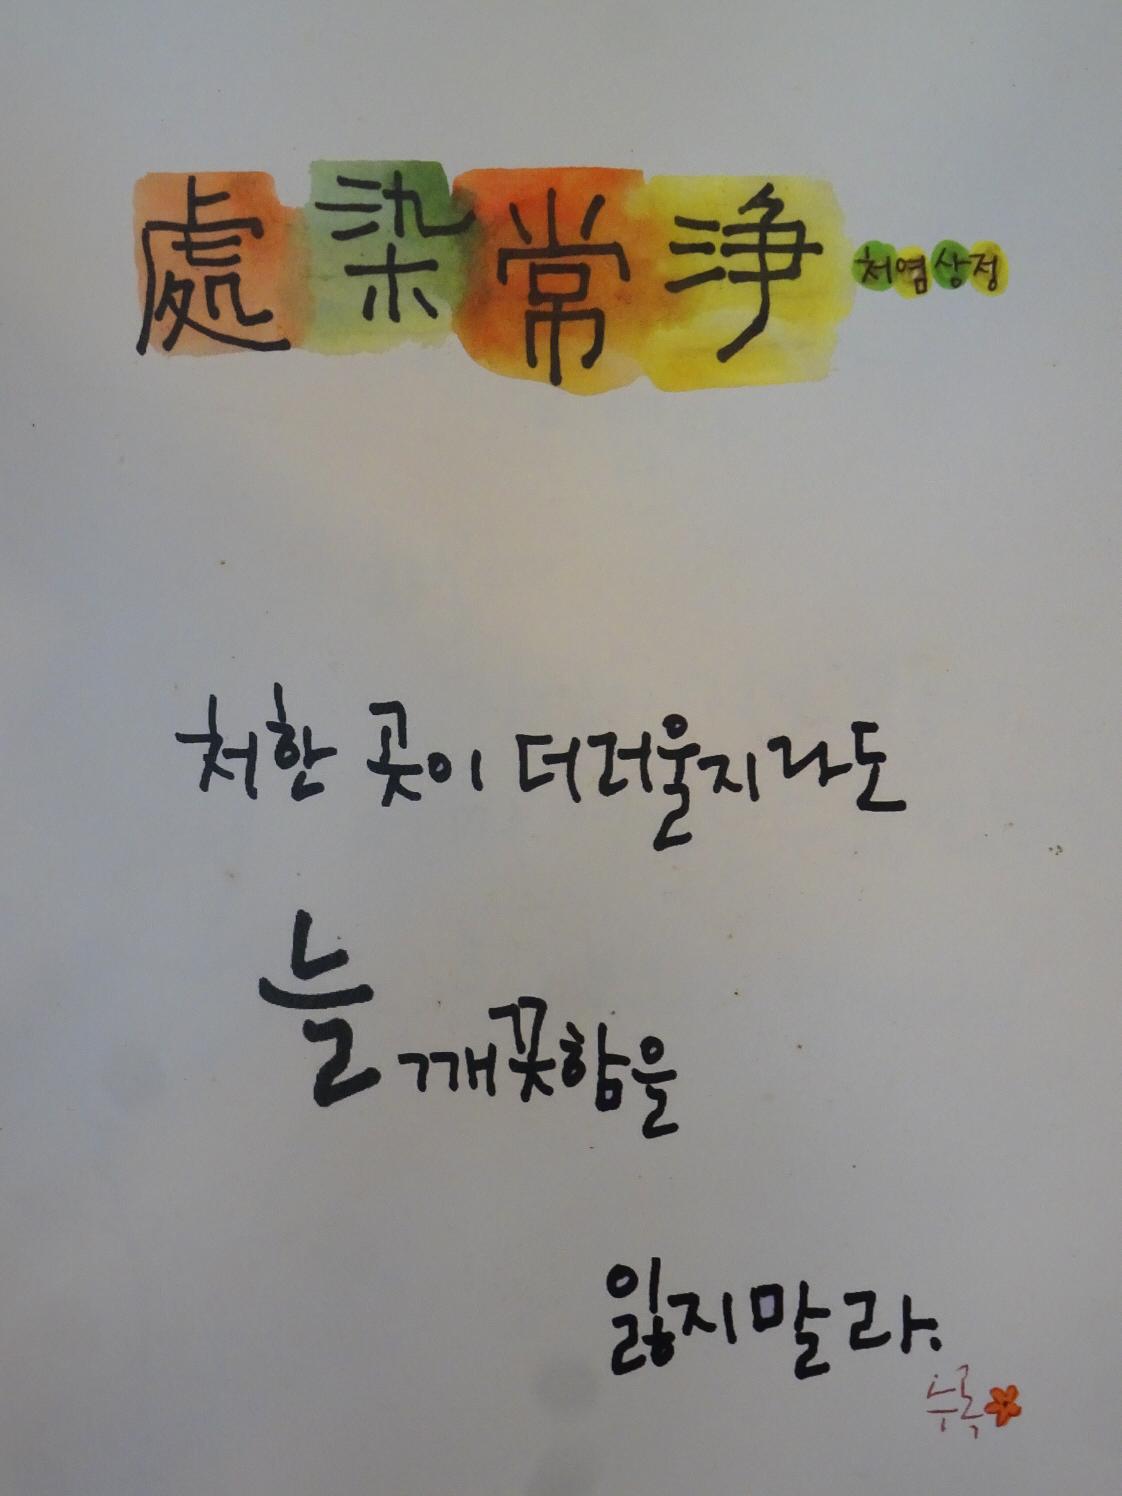 處染常淨 처염상정
처한 곳이 더러울지라도
늘 깨끗함을
잃지말라.
수록